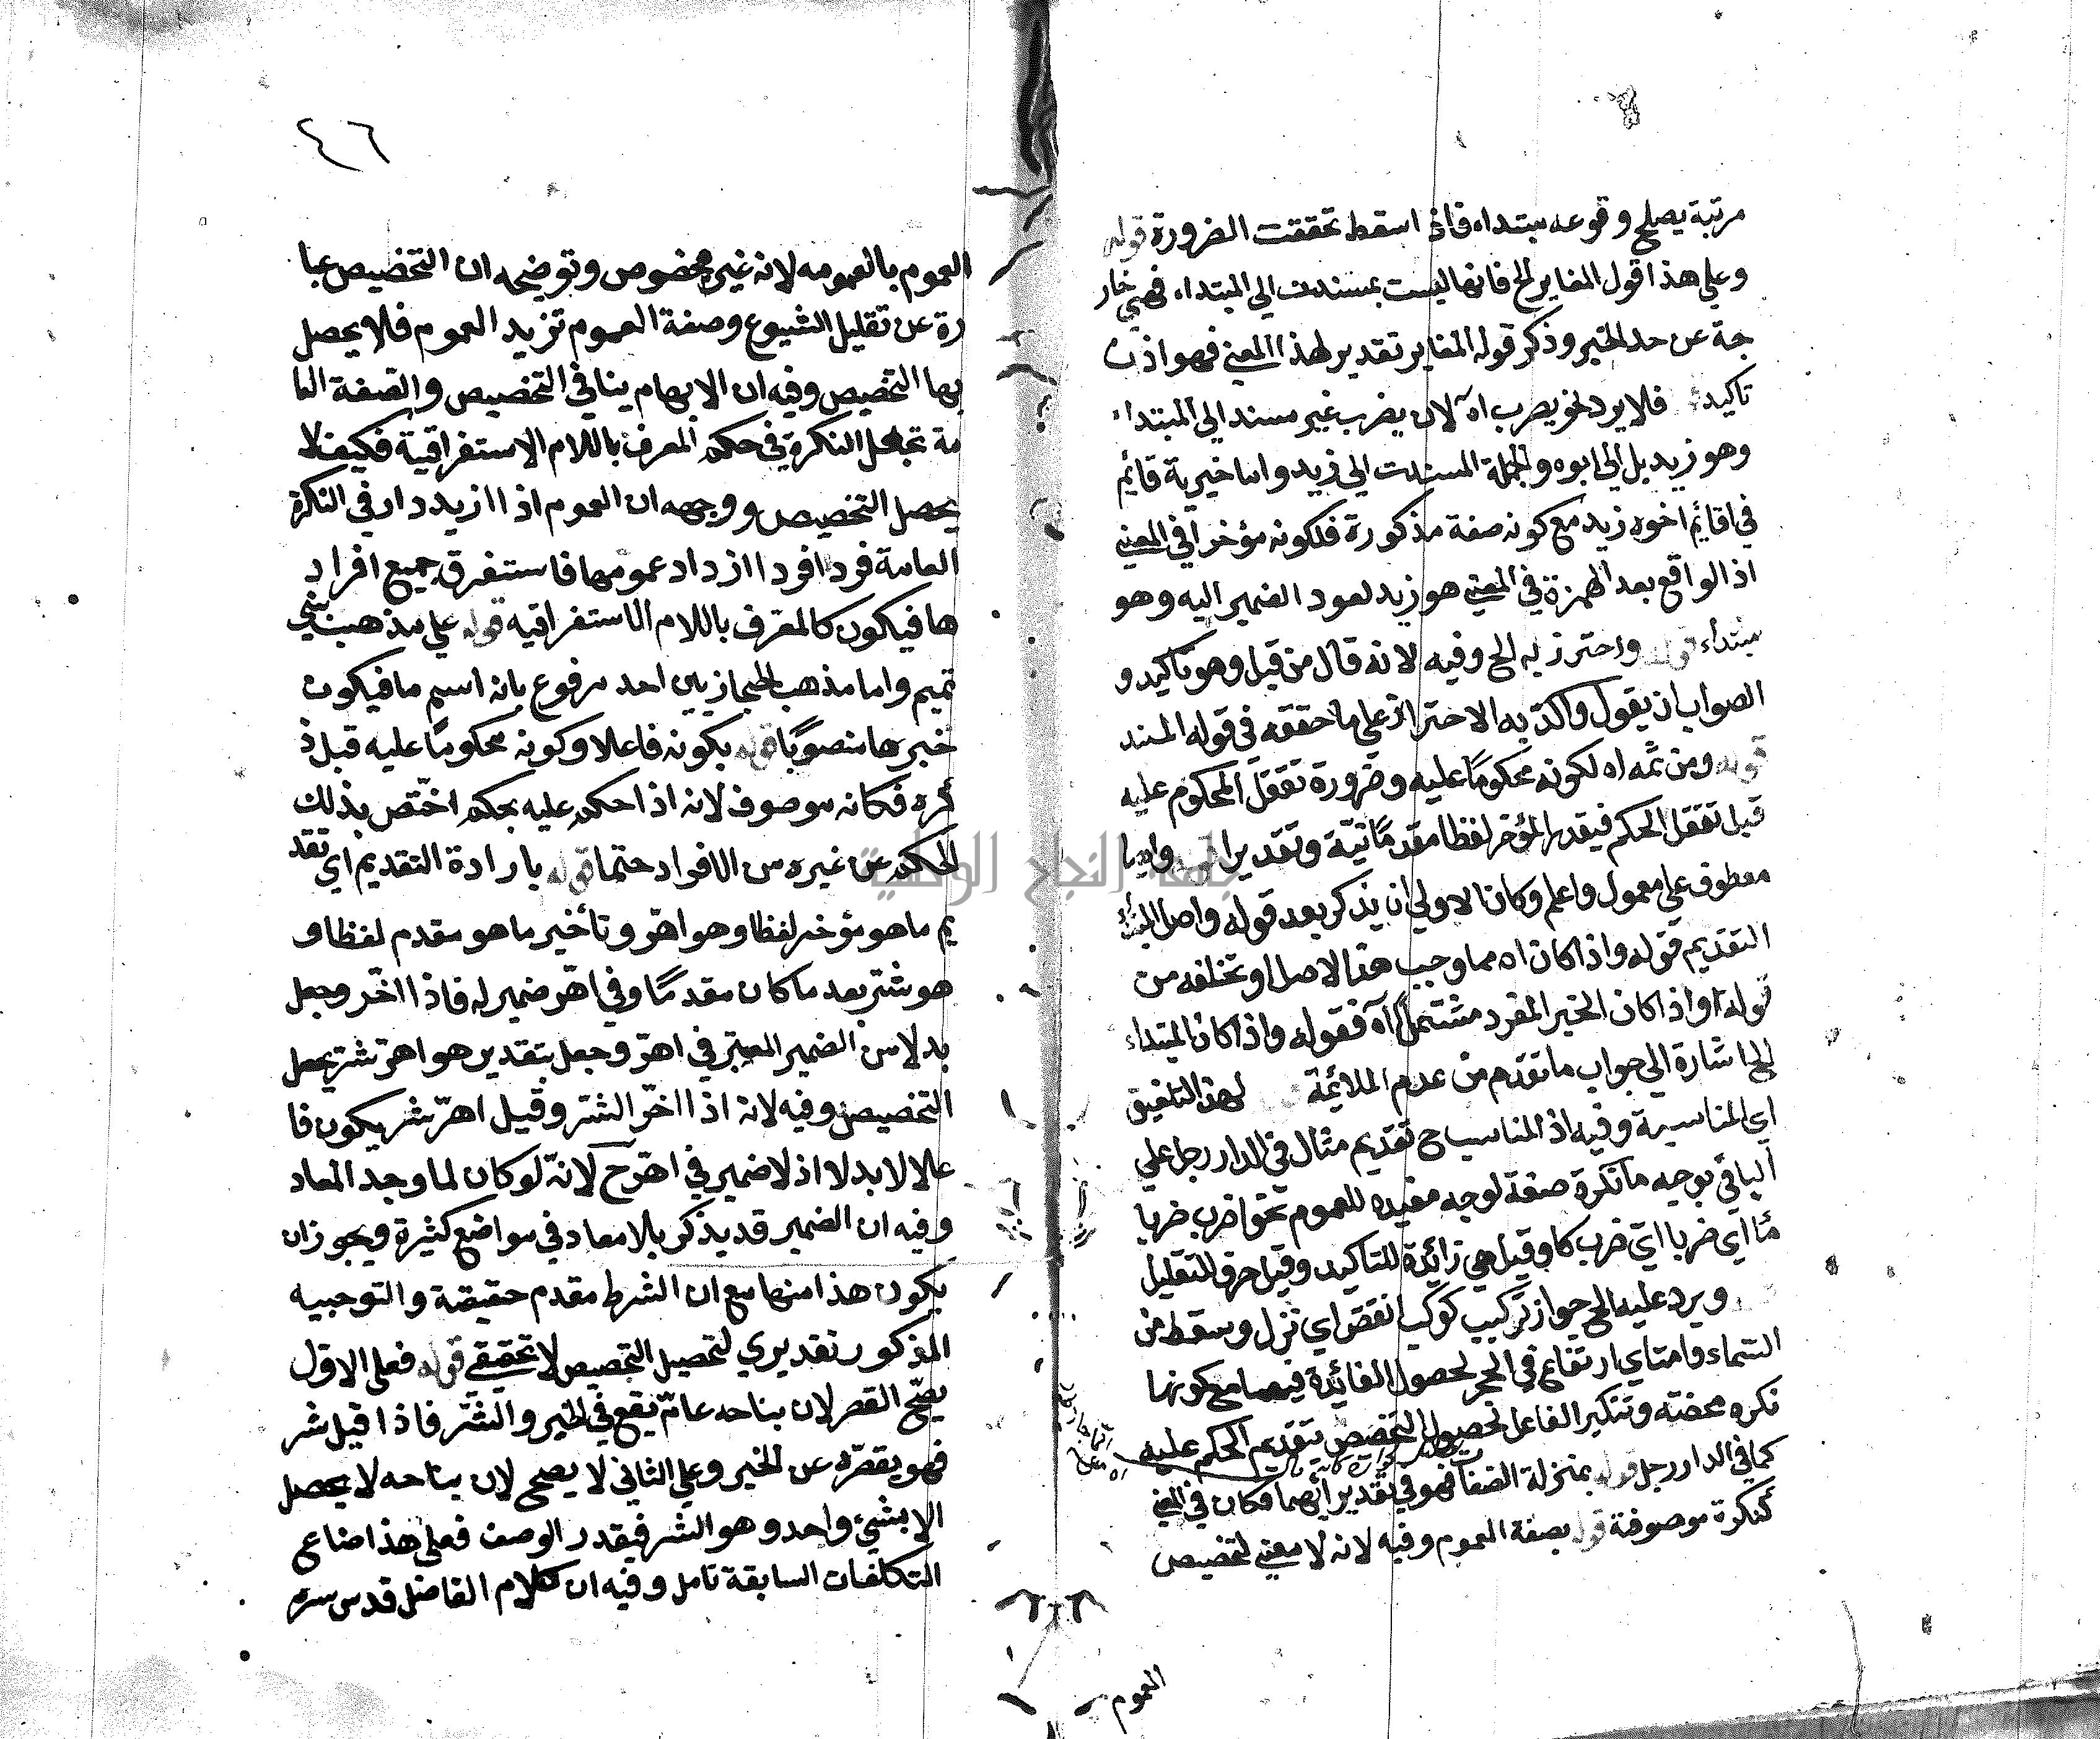 مرتبة يصلح وقوعه مبتداء فاذا اسقط تحققت الضرورة قوله
وعلى هذا قول المغاير الخ فانها ليست بمسندت الي المبتداء فهي خار
جة عن حد الخبر وذكر قوله المغاير تقدير لهذا المعني فهو اذن
تاكيد فلا يرد نحو يضرب اه لان يضرب غير مسند الي المبتداء
وهو زيد بل الي ابوه والجملة المسندت الي زيد واما خبرية قائم
في اقائم اخوه زيد مع كونه صفة مذكورة فلكونه مؤخرا في المعني
اذ الواقع بعد الهمزة في المعني هو زيد لعود الضمير اليه وهو
مبتداء قوله واحترز به الخ وفيه لانه قال من قبل وهو تاكيد و
الصواب ان يقول واكد به الاحتراز علي ما حققه في قوله المسند
قوله ومن ثمه اه لكونه محكوما عليه وضرورة تعقل المحكوم عليه
قبل تعقل الحكم فيقدر المؤخر لفظا مقدما نيّة وتقدير
معطوف علي معمول واعلم وكان الاولي ان يذكر بعد قوله واصل المبتداء
التقديم قوله واذا كان اه مما وجب هذا الاصل او تخلفه من
قوله واذا كان الخبر المفرد مشتملا اه فقوله واذا كان المبتداء
الخ اشارة الي جواب ما تقدم من عدم الملائمة لهذا التلفيق
اي المناسبة وفيه اذ المناسب ح تقديم مثال في الدار رجل علي
الباقي بوجيه ما نكرة صفة لوجه مفيده للعموم نحو اضرب ضربا
مّا اي ضربا ايّ ضرب كا وقيل هي زائدة للتاكيد وقيل حرف للتقليل
ويرد عليه الخ جواز تركيب كوكب انقضّ اي نزل وسقط من
السماء وامتاي ارتفاع في الحجر لحصول الفائدة فيهما مع كونها
نكره محضته وتنكير الفاعل لحصول التخصيص بتقديم الحكم عليه
كما في الدار رجل قوله بمنزلة الصفات فهو في تقدير ايهما فكان في المعني
كنكرة موصوفة قوله بصفة العموم وفيه لانه لا معني لتخصيص
العموم
٤٦
العموم بالعمومه لانه غير مخصوص وتوضيحه ان التخصيص عبا
رة عن تقليل الشيوع وصفة العموم تزيد العموم فلا يحصل
بها التخصيص وفيه ان الابهام ينافي التخصيص والصفة العا
مة تجعل النكرة في حكم المعرف باللام الاستغراقية فكيف لا
يحصل التخصيص ووجهه ان العموم اذا ازيد دار في النكرة
العامة فردا فردا ازداد عمومها فاستغرق جميع افراد
ها فيكون كالمعرف باللام الاستغراقيه قوله علي مذهب بني
تميم واما مذهب الحجازيين احد مرفوع بانه اسم ما فيكون
خبرها منصوبا قوله بكونه فاعلا وكونه محكوما عليه قبل ذ
كره فكانه موصوف لانه اذا حكم عليه بحكم اختص بذلك
الحكم عن غيره من الافراد حتما قوله بارادة التقديم اي تقد
يم ما هو مؤخر لفظا وهو اهرّ وتأخير ما هو مقدم لفظا و
هو شتر بعد ما كان مقدمًا وفي اهرّ ضمير له فاذا اخّر وجعل
بدلا من الضمير المعتبر في اهرّ وجعل بتقدير هو اهرّ شتر يحصل
التخصيص وفيه لانه اذا اخّر الشتر وقيل اهرّ شر يكون فا
علا لا بدلا اذ لا ضمير في اهرّ ح لانّه لو كان لما وجد المعاد
وفيه ان الضمير قد يذكر بلا معاد في مواضع كثيرة ويجوز ان
يكون هذا منها مع ان الشرط مقدم حقيقة والتوجيه
المذكور تقديري لتحصيل التخصيص لا تحقيقي قوله فعلي الاول
يصحّ القصر لان بناحه عامّ يقع في الخير والشتّر فاذا قيل شر
فهو يقصّره عن الخير وعلي الثاني لا يصح لان بناحه لا يحصل
الا بشيء واحد وهو الشر فيقدر الوصف فعلي هذا ضاع
التكلفات السابقة تامل وفيه ان كلام الفاضل قدس سره
جامعة النجاح الوطنية